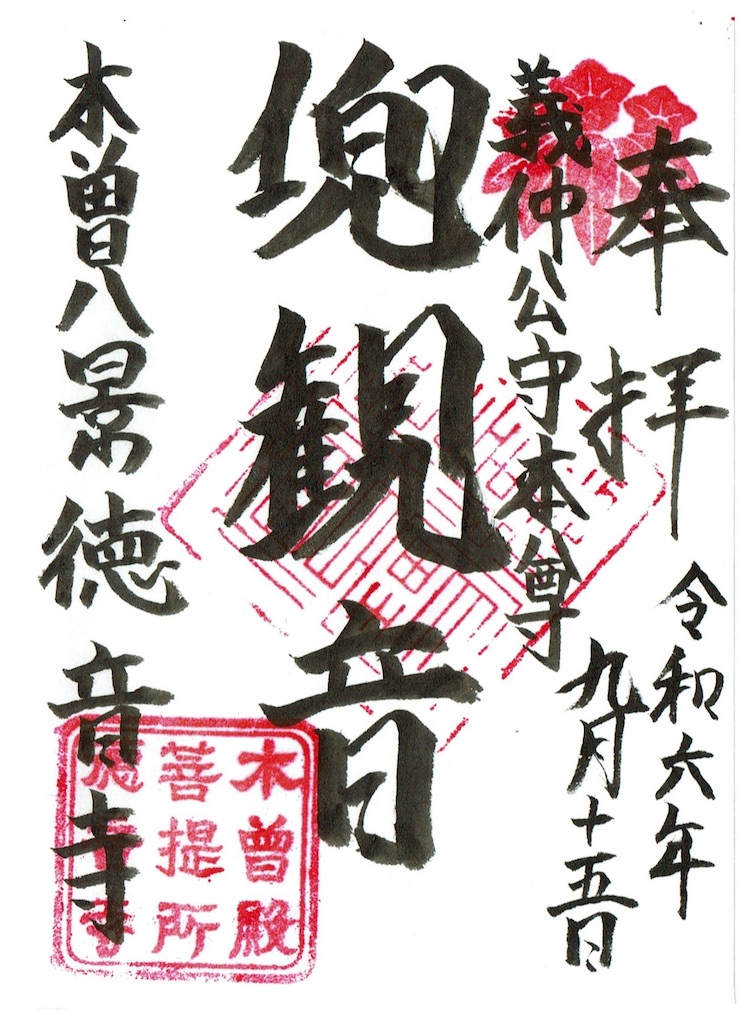 奉拝
令和六年
九月十五日
義仲公守本尊
兜観音
木曽八景徳音寺
木曽殿
菩提所
徳音寺